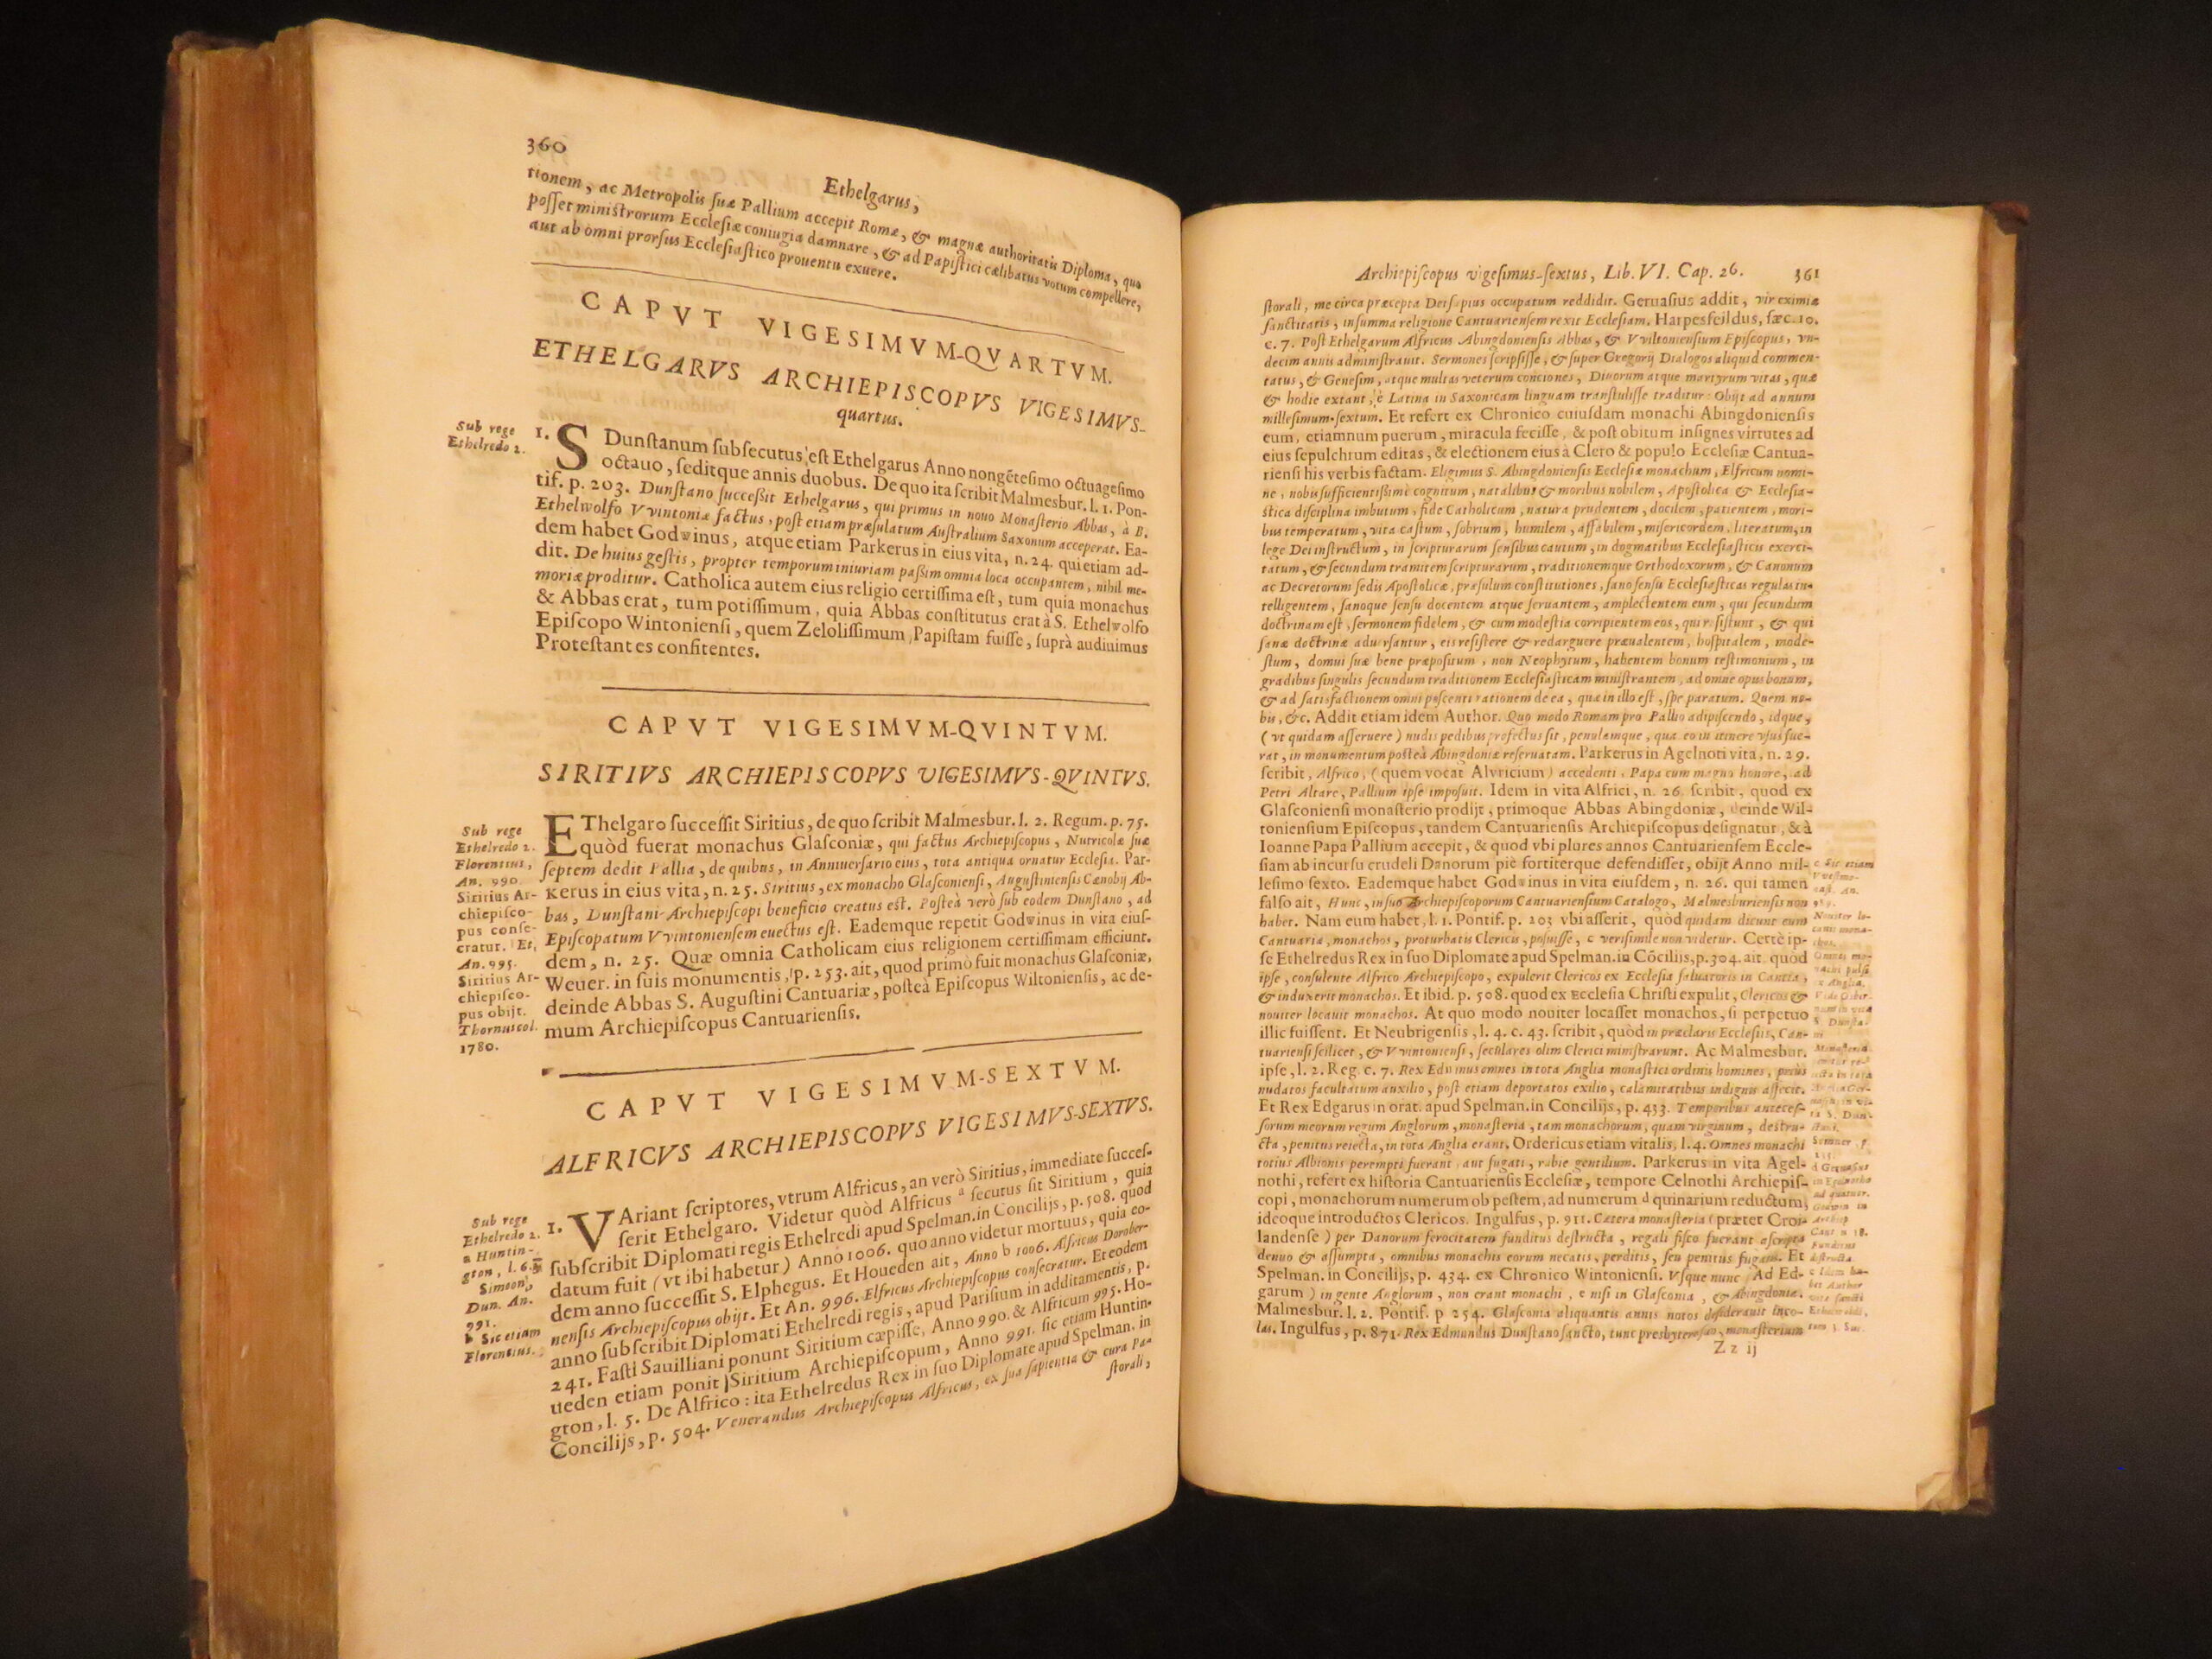 360
Ethelgarus,
tionem, ac Metropolis suæ Pallium accepit Romæ, & magnæ authoritatis Diploma, quo
posset ministrorum Ecclesiæ coniugia damnare, & ad Papistici cælibatus votum compellere,
aut ab omni prorsus Ecclesiastico prouentu exuere.
CAPVT VIGESIMVM-QVARTVM.
ETHELGARVS ARCHIEPISCOPVS VIGESIMVS-
quartus.
Sub rege
Ethelredo 2.
1. S Dunſtanum ſubſecutus eſt Ethelgarus Anno nongẽteſimo octuageſimo
octauo, ſeditque annis duobus. De quo ita ſcribit Malmesbur. l. 1. Pon-
tif. p. 203. Dunſtano ſucceßit Ethelgarus, qui primus in nouo Monaſterio Abbas, à B.
Ethelwolfo VVintoniæ factus, poſt etiam præſulatum Auſtralium Saxonum acceperat. Ea-
dem habet Godwinus, atque etiam Parkerus in eius vita, n. 24. qui etiam ad-
dit. De huius geſtis, propter temporum iniuriam paßim omnia loca occupantem, nihil me-
moriæ proditur. Catholica autem eius religio certiſſima eſt, tum quia monachus
& Abbas erat, tum potiſſimum, quia Abbas conſtitutus erat à S. Ethelwolfo
Epiſcopo Wintonienſi, quem Zeloſiſſimum Papiſtam fuiſſe, ſuprà audiuimus
Proteſtantes confitentes.
CAPVT VIGESIMVM-QVINTVM.
SIRITIVS ARCHIEPISCOPVS VIGESIMVS-QVINTVS.
Sub rege
Ethelredo 2.
Florentius,
An. 990.
Siritius Ar-
chiepiſco-
pus conſe-
cratur. Et,
An. 995.
Siritius Ar-
chiepiſco-
pus obijt.
Thornus col.
1780.
EThelgaro ſucceſſit Siritius, de quo ſcribit Malmesbur. l. 2. Regum. p. 75.
quòd fuerat monachus Glaſconiæ, qui factus Archiepiſcopus, Nutricolæ ſuæ
ſeptem dedit Pallia, de quibus, in Anniuerſario eius, tota antiqua ornatur Eccleſia. Par-
kerus in eius vita, n. 25. Siritius, ex monacho Glaſconienſi, Auguſtinienſis Cænobij Ab-
bas, Dunſtani Archiepiſcopi beneficio creatus eſt. Poſteà verò ſub eodem Dunſtano, ad
Epiſcopatum VVintonienſem euectus eſt. Eademque repetit Godwinus in vita eiuſ-
dem, n. 25. Quæ omnia Catholicam eius religionem certiſſimam efficiunt.
Weuer. in ſuis monumentis, p. 253. ait, quod primò fuit monachus Glaſconiæ,
deinde Abbas S. Auguſtini Cantuariæ, poſteà Epiſcopus Wiltonienſis, ac de-
mum Archiepiſcopus Cantuarienſis.
CAPVT VIGESIMVM-SEXTVM.
ALFRICVS ARCHIEPISCOPVS VIGESIMVS-SEXTVS.
Sub rege
Ethelredo 2.
a Hunting-
gton, l. 6.
Simeon
Dun. An.
991.
b Sic etiam
Florentius.
1. VAriant ſcriptores, vtrum Alfricus, an verò Siritius, immediate ſucceſ-
ſerit Ethelgaro. Videtur quòd Alfricus a ſecutus ſit Siritium, quia
ſubſcribit Diplomati regis Ethelredi apud Spelman. in Concilijs, p. 508. quod
datum fuit (vt ibi habetur) Anno 1006. quo anno videtur mortuus, quia eo-
dem anno ſucceſſit S. Elphegus. Et Houeden ait, Anno b 1006. Alfricus Dorober-
nenſis Archiepiſcopus obijt. Et An. 996. Elfricus Archiepiſcopus conſecratur. Et eodem
anno ſubſcribit Diplomati Ethelredi regis, apud Pariſium in additamentis, p.
241. Faſti Sauilliani ponunt Siritium cæpiſſe, Anno 990. & Alfricum 995. Ho-
ueden etiam ponit Siritium Archiepiſcopum, Anno 991. ſic etiam Huntin-
gton, l. 5. De Alfrico: ita Ethelredus Rex in ſuo Diplomate apud Spelman. in
Concilijs, p. 504. Venerandus Archiepiſcopus Alfricus, ex ſua ſapientia & cura Pa-
ſtorali,
Archiepiſcopus vigeſimus-ſextus, Lib. VI. Cap. 26. 361
ſtorali, me circa præcepta Dei ſæpius occupatum reddidit. Geruaſius addit, vir eximiæ
ſanctitatis, in ſumma religione Cantuarienſem rexit Eccleſiam. Harpesfeildus, ſæc. 10.
c. 7. Poſt Ethelgarum Alfricus Abingdonienſis Abbas, & VViltonienſium Epiſcopus, vn-
decim annis adminiſtrauit. Sermones ſcripſiſſe, & ſuper Gregorij Dialogos aliquid commen-
tatus, & Geneſim, atque multas veterum conciones, Diuorum atque martyrum vitas, quæ
& hodie extant, è Latina in Saxonicam linguam tranſtuliſſe traditur. Obijt ad annum
milleſimum-ſextum. Et refert ex Chronico cuiuſdam monachi Abingdonienſis
eum, etiamnum puerum, miracula feciſſe, & poſt obitum inſignes virtutes ad
eius ſepulchrum editas, & electionem eius à Clero & populo Eccleſiæ Cantua-
rienſi his verbis factam. Eligimus S. Abingdonienſis Eccleſiæ monachum, Elfricum nomi-
ne, nobis ſufficientißimè cognitum, natalibus & moribus nobilem, Apoſtolica & Eccleſia-
ſtica diſciplina imbutum, fide Catholicum, natura prudentem, docilem, patientem, mori-
bus temperatum, vita caſtum, ſobrium, humilem, affabilem, miſericordem, literatum, in
lege Dei inſtructum, in ſcripturarum ſenſibus cautum, in dogmatibus Eccleſiaſticis exerci-
tatum, & ſecundum tramitem ſcripturarum, traditionemque Orthodoxorum, & Canonum
ac Decretorum ſedis Apoſtolicæ, præſulum conſtitutiones, ſano ſenſu Eccleſiaſticas regulas in-
telligentem, ſanoque ſenſu docentem atque ſeruantem, amplectentem eum, qui ſecundum
doctrinam eſt, ſermonem fidelem, & cum modeſtia corripientem eos, qui reſiſtunt, & qui
ſanæ doctrinæ aduerſantur, eis reſiſtere & redarguere præualentem, hoſpitalem, mode-
ſtum, domui ſuæ bene præpoſitum, non Neophytum, habentem bonum teſtimonium, in
gradibus ſingulis ſecundum traditionem Eccleſiaſticam miniſtrantem, ad omne opus bonum,
& ad ſatisfactionem omni poſcenti rationem de ea, quæ in illo eſt, ſpe paratum. Quem no-
bis, &c. Addit etiam idem Author. Quo modo Romam pro Pallio adipiſcendo, idque,
(vt quidam aſſeruere) nudis pedibus profectus ſit, penulamque, qua eo in itinere vſus fue-
rat, in monumentum poſteà Abingdoniæ reſeruatam. Parkerus in Agelnoti vita, n. 29.
ſcribit, Alfrico, (quem vocat Alvricium) accedenti, Papa cum magno honore, ad
Petri Altare, Pallium ipſe impoſuit. Idem in vita Alfrici, n. 26. ſcribit, quod ex
Glaſconienſi monaſterio prodijt, primoque Abbas Abingdoniæ, deinde Wil-
tonienſium Epiſcopus, tandem Cantuarienſis Archiepiſcopus deſignatur, & à
Ioanne Papa Pallium accepit, & quod vbi plures annos Cantuarienſem Eccle-
ſiam ab incurſu crudeli Danorum piè fortiterque defendiſſet, obijt Anno mil-
leſimo ſexto. Eademque habet Godwinus in vita eiuſdem, n. 26. qui tamen
falſo ait, Hunc, in ſuo Archiepiſcoporum Cantuarienſium Catalogo, Malmesburienſis non
habet. Nam eum habet, l. 1. Pontif. p. 203 vbi aſſerit, quòd quidam dicunt eum
Cantuariæ, monachos, proturbatis Clericis, poſuiſſe, c veriſimile non videtur. Certè ip-
ſe Ethelredus Rex in ſuo Diplomate apud Spelman. in Cõcilijs, p. 304. ait, quòd
ipſe, conſulente Alfrico Archiepiſcopo, expulerit Clericos ex Eccleſia ſaluatoris in Cantia,
& induxerit monachos. Et ibid. p. 508. quod ex Eccleſia Chriſti expulit, Clericos &
nouiter locauit monachos. At quo modo nouiter locaſſet monachos, ſi perpetuo
illic fuiſſent. Et Neubrigenſis, l. 4. c. 43. ſcribit, quòd in præclaris Eccleſiis, Can-
tuarienſi ſcilicet, & VVintonienſi, ſeculares olim Clerici miniſtrarunt. Ac Malmesbur.
ipſe, l. 2. Reg. c. 7. Rex Eduinus omnes in tota Anglia monaſtici ordinis homines, prius
nudatos facultatum auxilio, poſt etiam deportatos exilio, calamitatibus indignis affecit.
Et Rex Edgarus in orat. apud Spelman. in Concilijs, p. 433. Temporibus anteceſ-
ſorum meorum regum Anglorum, monaſteria, tam monachorum, quam virginum, deſtru-
cta, penitus reiecta, in tota Anglia erant. Ordericus etiam vitalis, l. 4. Omnes monachi
totius Albionis perempti fuerant, aut fugati, rabie gentilium. Parkerus in vita Agel-
nothi, refert ex hiſtoria Cantuarienſis Eccleſiæ, tempore Celnothi Archiepiſ-
copi, monachorum numerum ob peſtem, ad numerum d quinarium reductum,
ideoque introductos Clericos. Ingulfus, p. 911. Cætera monaſteria (præter Croi-
landenſe) per Danorum ferocitatem funditus deſtructa, regali fiſco fuerant aſcripta
denuo & aſſumpta, omnibus monachis eorum necatis, perditis, ſeu penitus fugatis. Et
Spelman. in Concilijs, p. 434. ex Chronico Wintonienſi. Vſque nunc (Ad Ed-
garum) in gente Anglorum, non erant monachi, e niſi in Glaſconia, & Abingdonia.
Malmesbur. l. 2. Pontif. p. 254. Glaſconia aliquantis annis notos deſiderauit inco-
las. Ingulfus, p. 871. Rex Edmundus Dunſtano ſancto, tunc presbytero ſuo, monaſterium
Zz ij
c Sic etiam
An.
Nouiter lo-
cauit mona-
chos.
Omnes mo-
nachi pulſi
ex Anglia.
in vita
S. Dunſta-
ni.
d Geruaſius
Godwin in
Funditus
deſtructa.
bet Author
vitæ ſancti